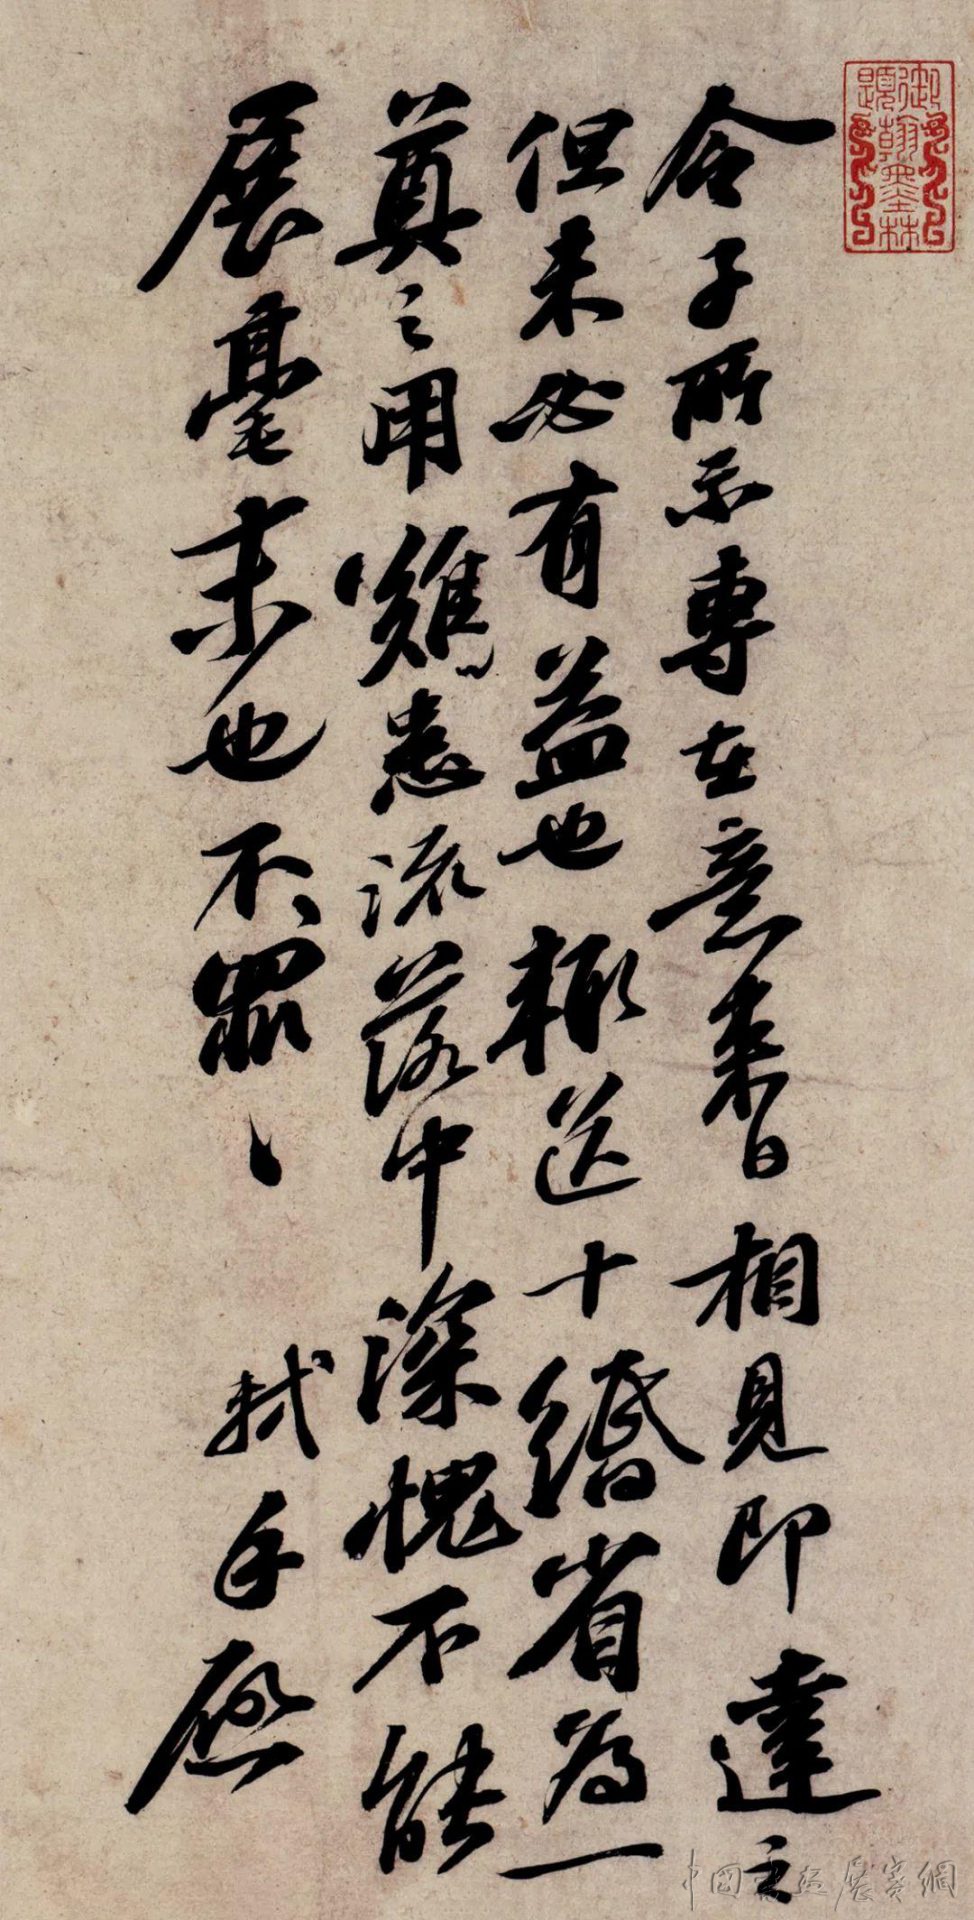 令子所示專在意來日相見即達之
但未必有益也輒送十緡省為一
奠之用難患流落中深愧不能
展毫末也不罪〻
軾手啟
御題翰墨林
中國書法展賽網